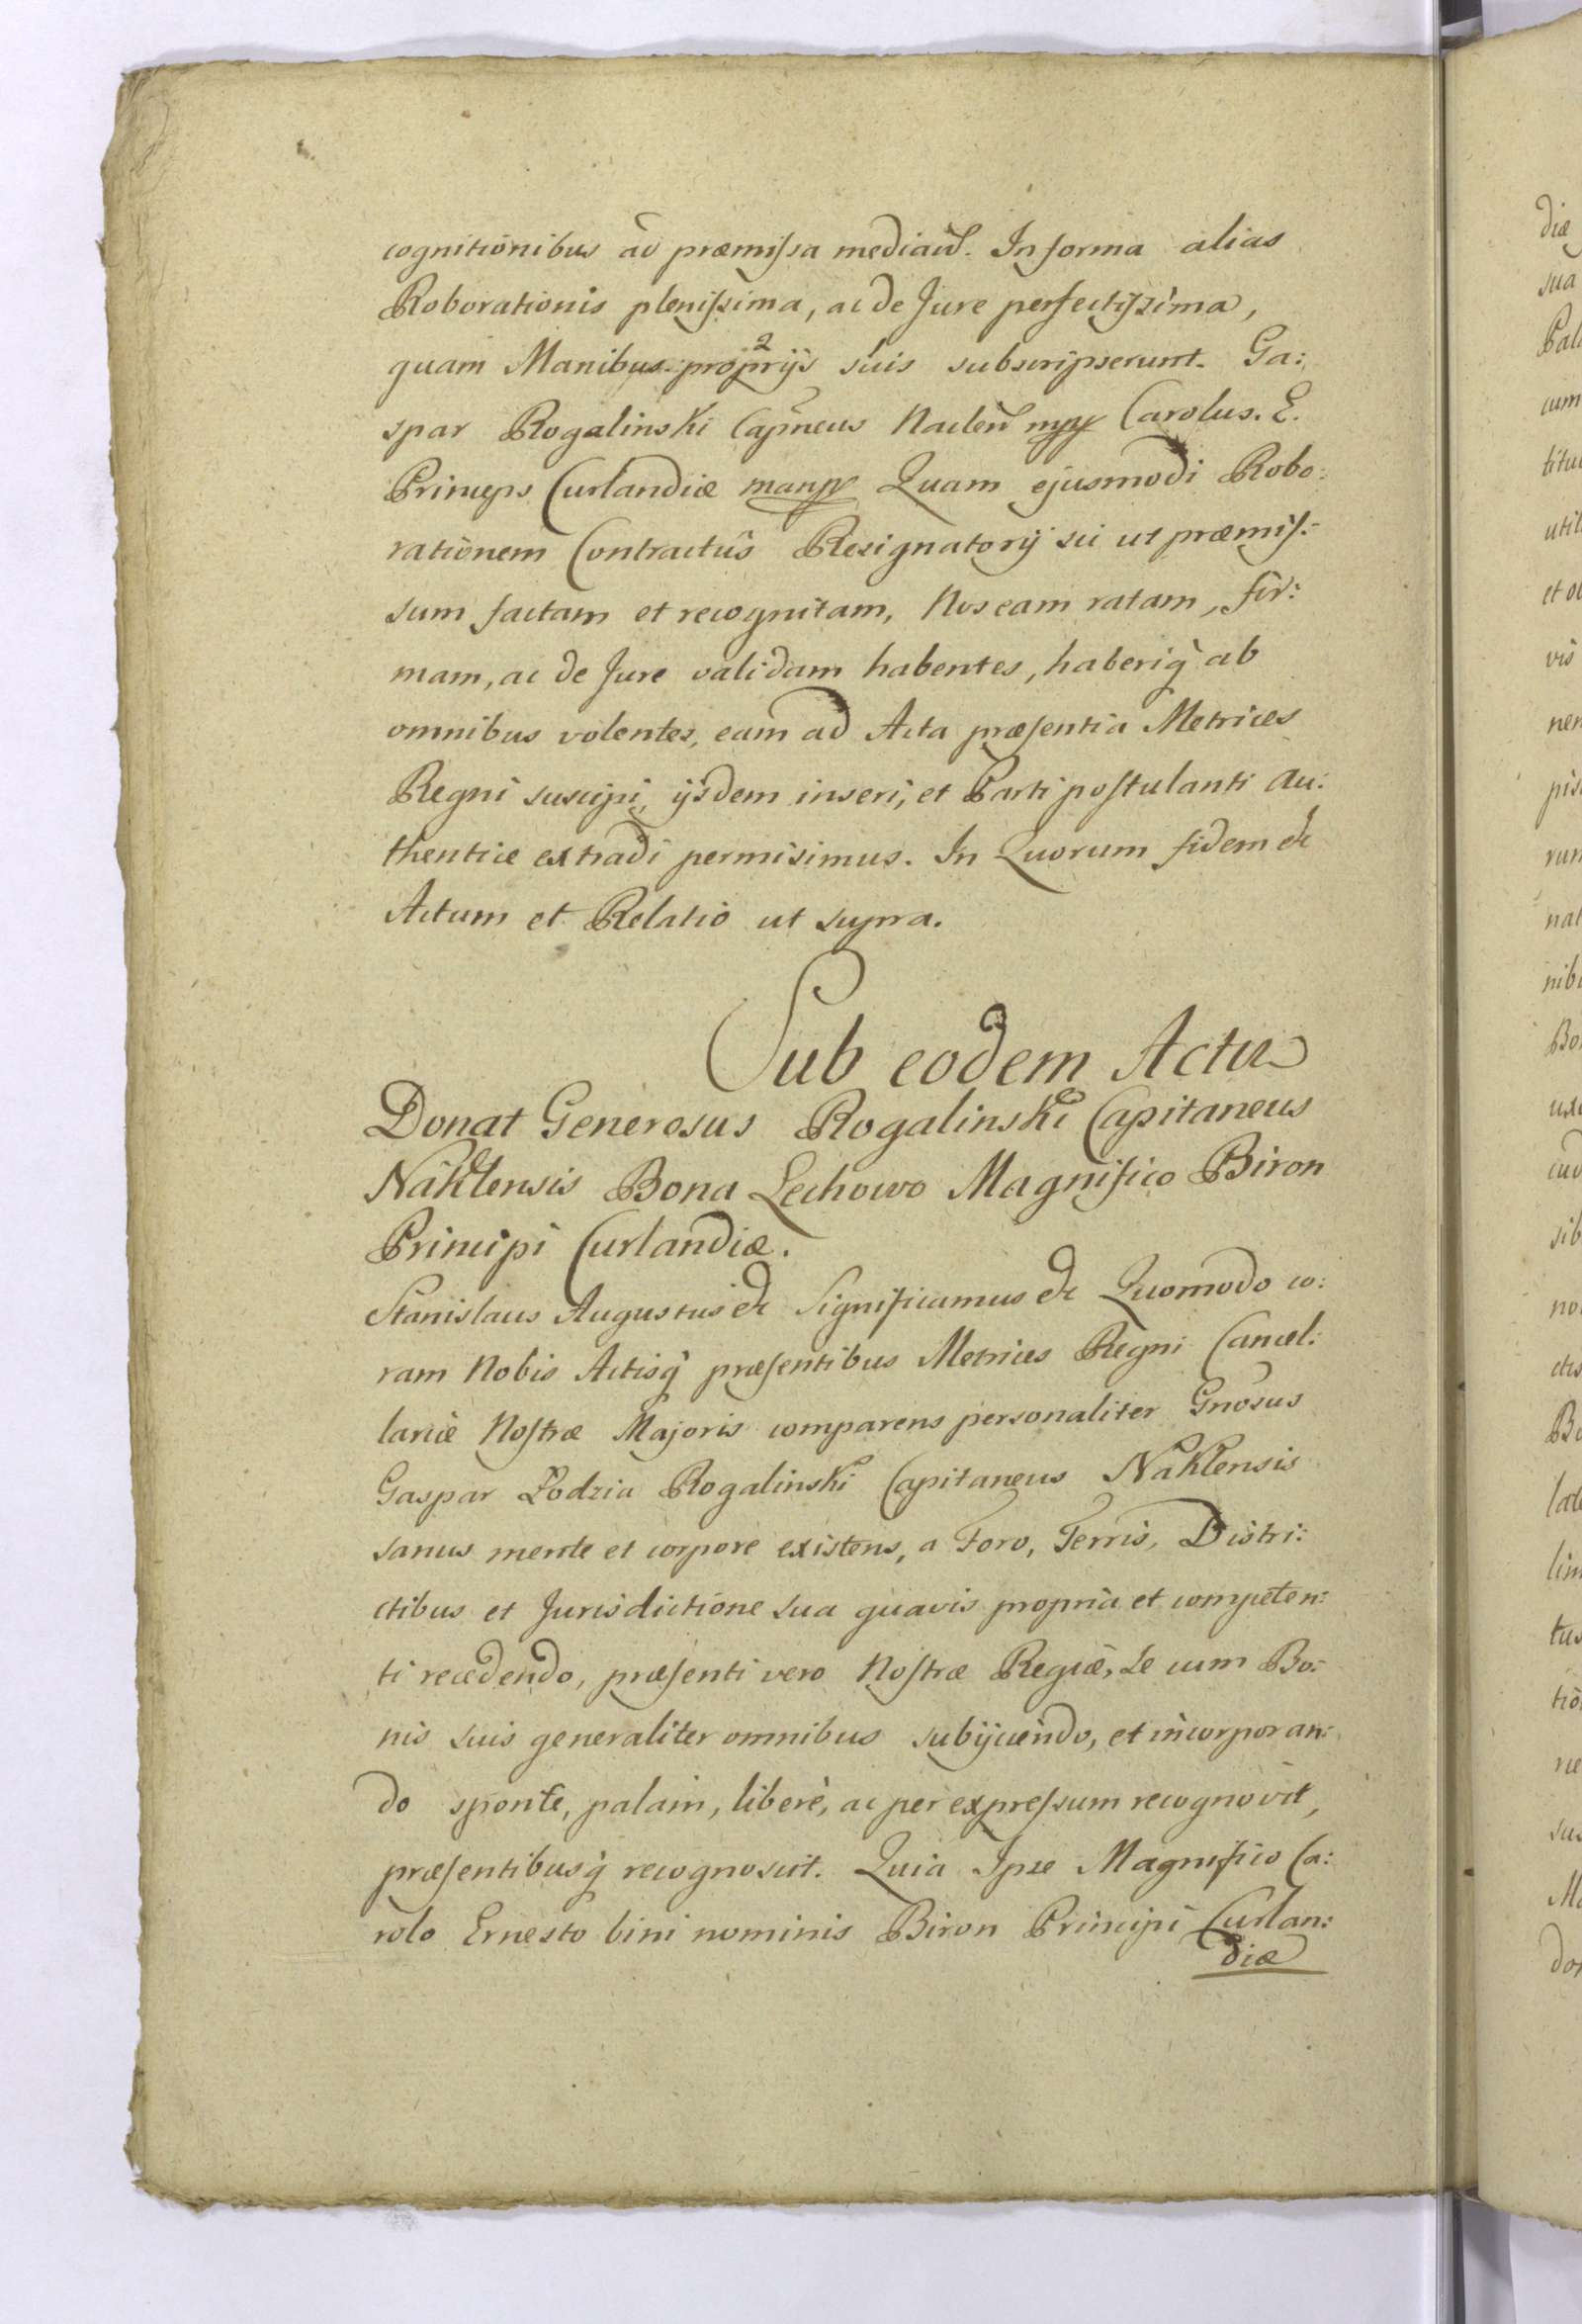 cognitionibus ac præmissa median̄. In forma alias
Roborationis plenissima, ac de Jure perfectissima,
quam Manibus proprijs suis subscripserunt. Ga:
spar Rogalinski Capneus Naclen̄ mpp Carolus. E.
Princeps Curlandiæ manpp Quam ejusmodi Robo:
rationem Contractûs Resignatorij sui ut præmis:
sum factam et recognitam, Nos eam ratam, fir:
mam, ac de Jure validam habentes, haberiq̀ ab
omnibus volentes, eam ad Acta præsentia Metrices
Regni suscipi, ijsdem inseri, et Parti postulanti au:
thentice extradi permisimus. In Quorum fidem &c
Actum et Relatio ut supra.
Sub eodem Actu
Donat Generosus Rogalinski Capitaneus
Naklensis Bona Lechowo Magnifico Biron
Principi Curlandiæ.
Stanislaus Augustus &c Significamus &c Quomodo co:
ram Nobis Actisq̀ præsentibus Metrices Regni Cancel:
lariæ Nostræ Majoris comparens personaliter Gnosus
Gaspar Łodzia Rogalinski Capitaneus Naklensis
sanus mente et corpore existens, a Foro, Terris, Distri:
ctibus et Jurisdictione sua quavis propria et competen:
ti recedendo, præsenti vero Nostræ Regiæ, se cum Bo:
nis suis generaliter omnibus subijciendo, et incorporan:
do sponte, palam, liberè, ac per expressum recognovit,
præsentibusq̀ recognoscit. Quia Ipse Magnifico Ca:
rolo Ernesto bini nominis Biron Principi Curlan:
diæ